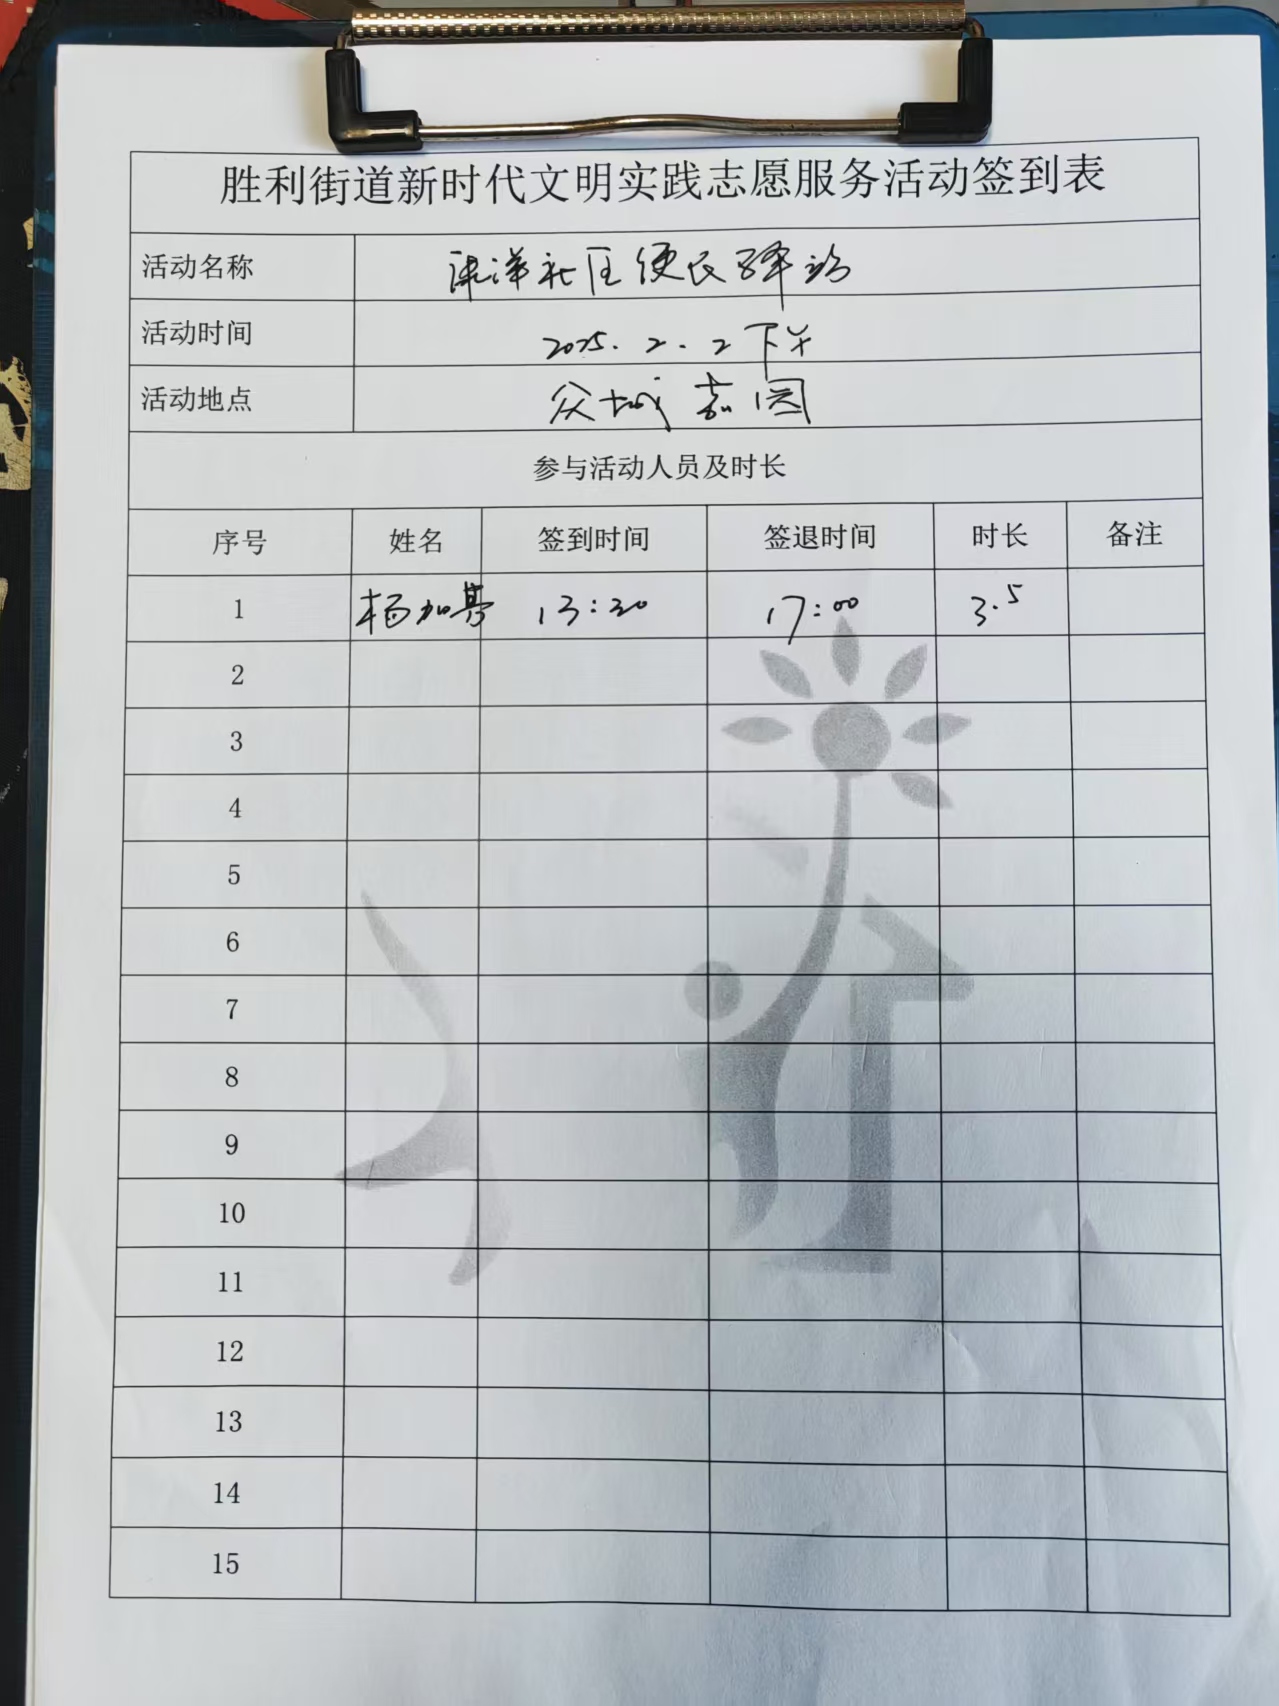 胜利街道新时代文明实践志愿服务活动签到表
活动名称 洋社区便民驿站
活动时间 2025.2.2下午
活动地点 众城嘉园
参与活动人员及时长
序号 姓名 签到时间 签退时间 时长 备注
1 杨加 13:30 17:00 3.5
2
3
4
5
6
7
8
9
10
11
12
13
14
15